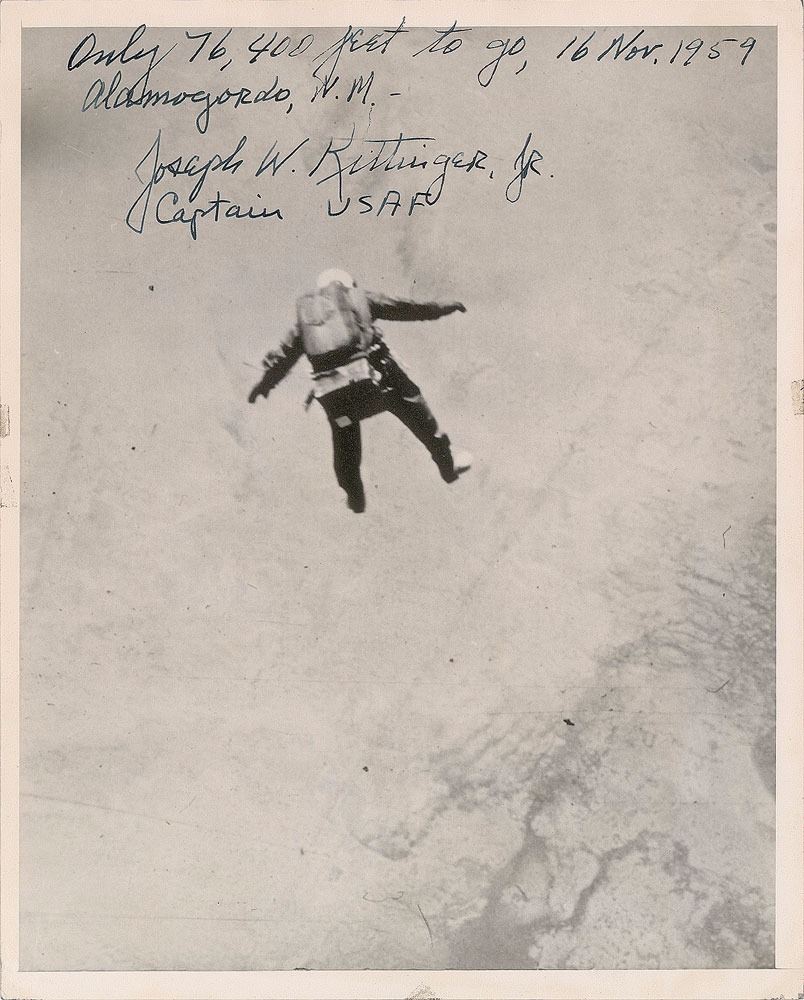 Only 76,400 feet to go, 16 Nov. 1959
Alamogordo, N.M. -
Joseph W. Kittinger, Jr.
Captain USAF